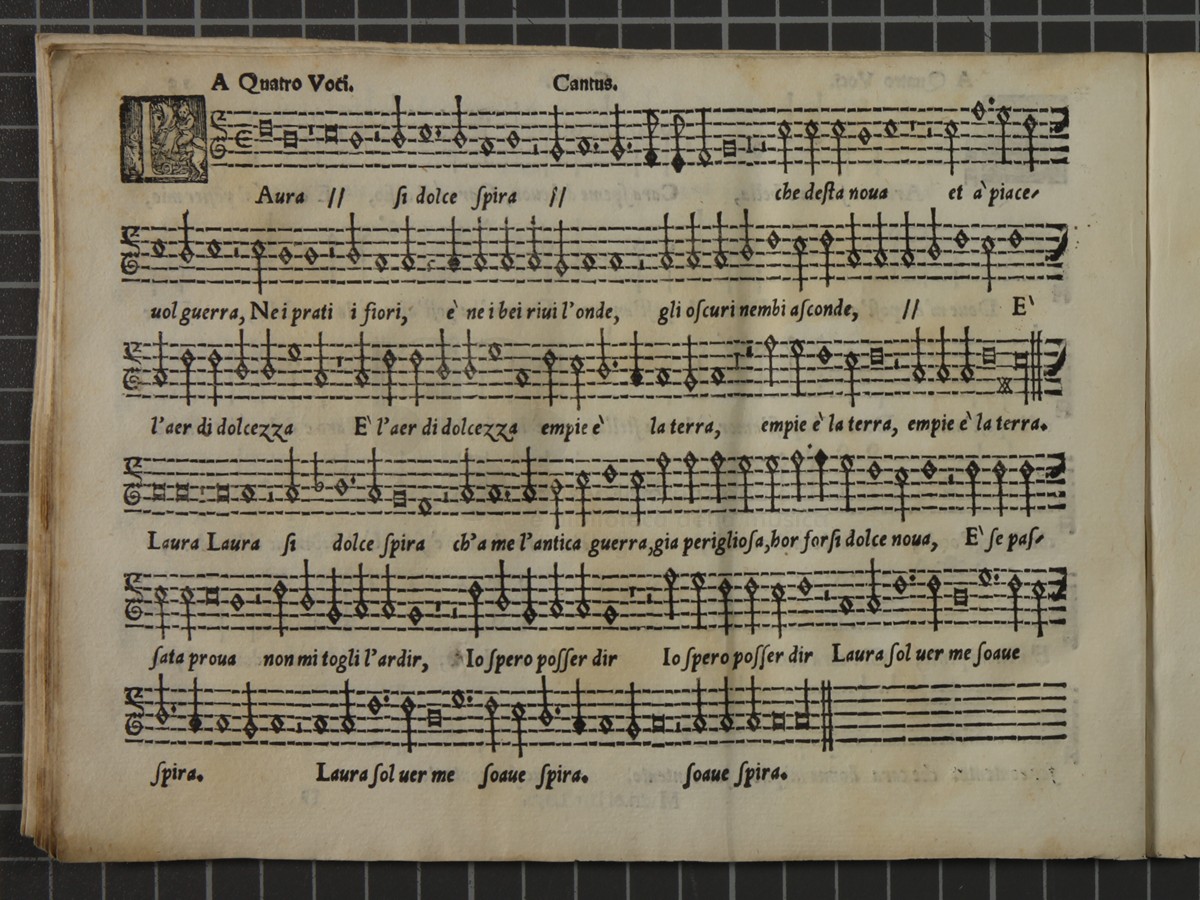 A Quatro Voci. Cantus.
LAura // ſi dolce ſpira // che deſta noua et a` piace-
uol guerra, Ne i prati i fiori, è ne i bei riui l'onde, gli oſcuri nembi aſconde, // E`
l'aer di dolcezza E` l'aer di dolcezza empie e` la terra, empie e` la terra, empie e` la terra.
Laura Laura ſi dolce ſpira ch'a me l'antica guerra, gia periglioſa, hor forſi dolce noua, E` ſe paſ-
ſata proua non mi togli l'ardir, Io ſpero poſſer dir Io ſpero poſſer dir Laura ſol uer me ſoaue
ſpira. Laura ſol uer me ſoaue ſpira. ſoaue ſpira.